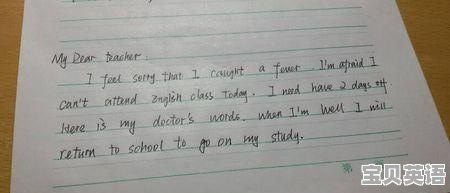 My Dear teacher:
I feel sorry that I caught a fever. I'm afraid I
can't attend English class Today. I need have 2 days off
Here is my doctor's words. when I'm well I will
return to school to go on my study.
第
宝贝英语